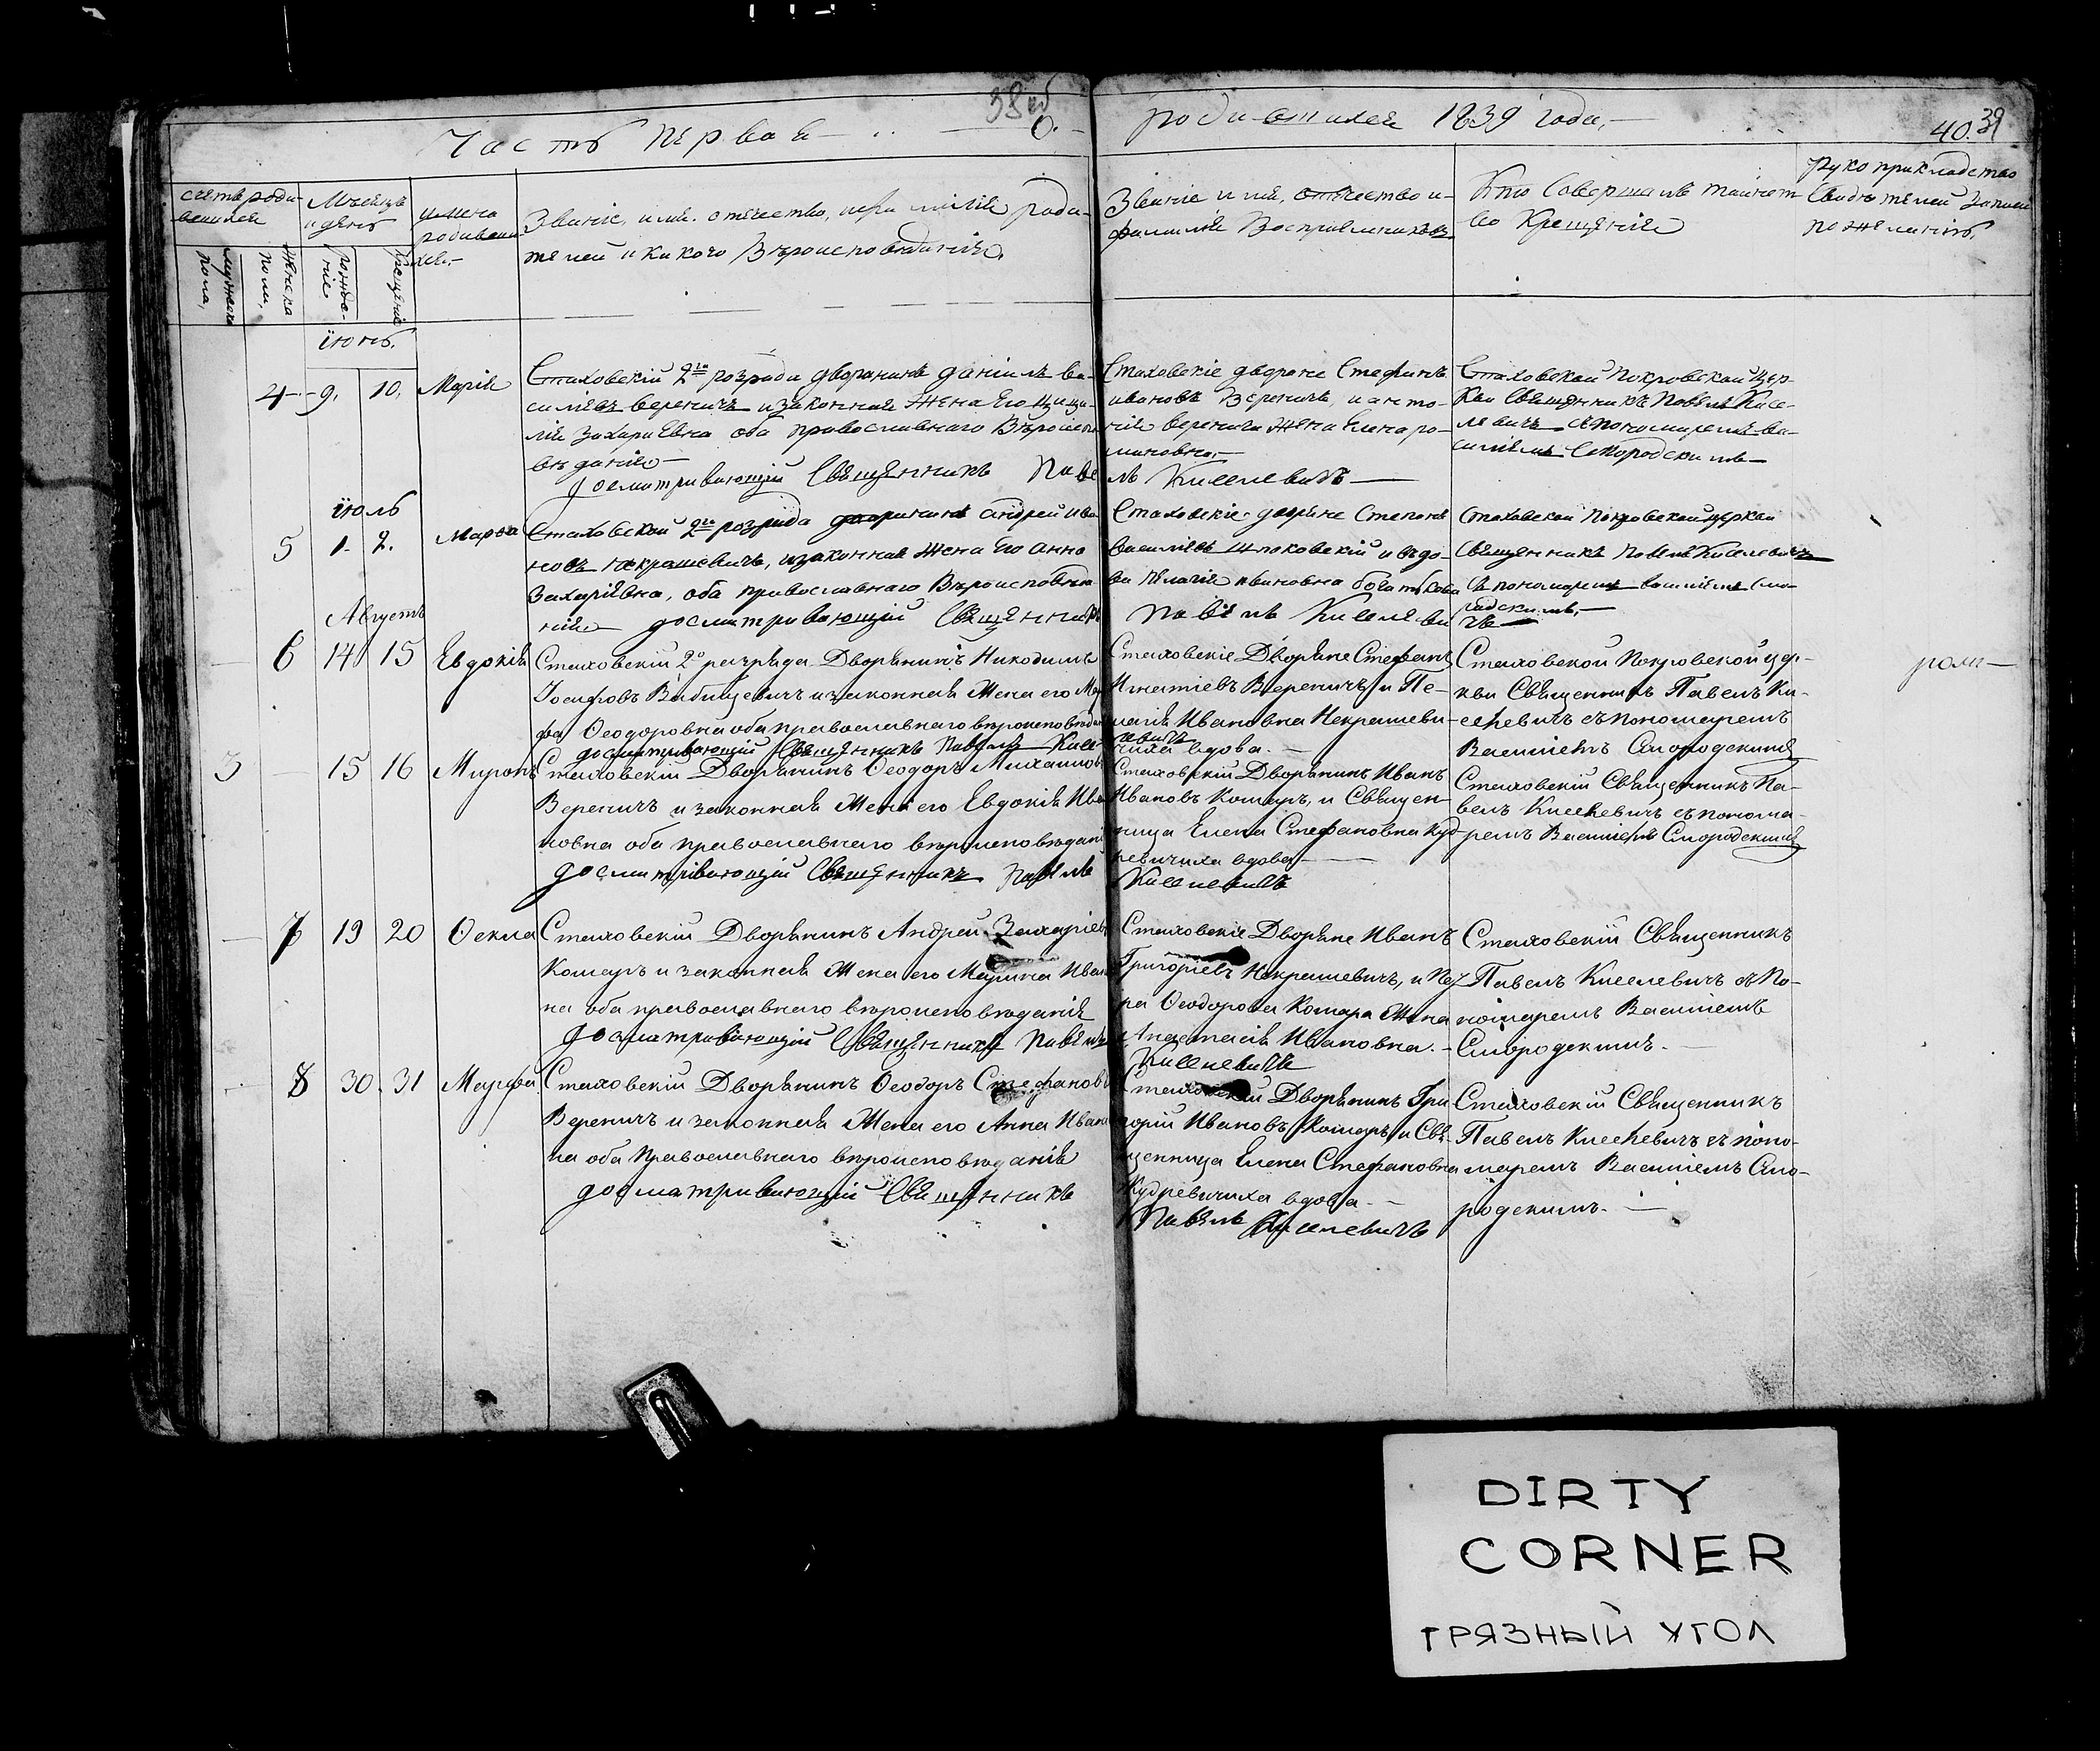 Часть первая о
родившихся 1839 года,
38 об
40. 39
счетъ роди-
вшихся
Мѣсяцъ
и день
имена
родивши
хся
Званіе, имя, отечество, и фамилія роди-
телей и какого Вѣроисповѣданія.
Званіе имя, отчество и
фамилія Восприемниковъ
Кто Совершалъ таинст
во Крещенія
Рукоприкладство
Свидѣтелей записи
по желанію.
мужеска
пола,
женска
пола,
рожде-
ніе
крещеніе
іюнь.
4 9. 10. Марія
Стаховскій 2го розряда дворанинъ даніилъ ва-
силіевъ вереничъ и законная Жена Его
лія Захаріевна оба православнаго Вѣроиспо
вѣданія
досматривающій Священникъ Паве
Стаховскіе дворане Стефанъ
ивановъ Вереничъ, и анто-
нія веренича Жена Елена ро-
мановна.
лъ Киселевичъ
Стаховской Покровской Цер-
кви Священникъ Павелъ Кисе-
левичъ съ пономаремъ Ва-
силіемъ Смородскимъ
іюль
5 1. 2. Марѳа
Стаховской 2го розряда дворанинъ андрей ива
новъ Некрашевичъ, и законная Жена Его анна
Захаріевна, оба православнаго Вѣроисповѣда
нія досматривающій Священникъ
Стаховскіе дворане Степанъ
Василіевъ Шлоковскій и вдо-
ва пелагія ивановна
Павелъ Киселеви
чъ
Стаховской Покровской церкви
Священникъ Павелъ Киселевичъ
съ пономаремъ василіемъ Смо
родскимъ,
Августъ
6 14 15 Евдокія
Стаховскій 2го разряда Дворянинъ Никодимъ
Іосифовъ Выбицевичъ и законная Жена его Мар
фа Ѳеодоровна оба православнаго вѣроисповѣдан
досматривающій Священникъ Павелъ Кисе
левичъ
Стаховскіе Дворяне Стефанъ
Игнатіевъ Вереничъ и Пе-
лагія Ивановна Некрашеви-
чиха вдова.
Стаховской Покровской цер-
кви Священникъ Павелъ Ки-
селевичъ съ пономаремъ
Василіемъ Смородскимъ
3 15 16 Миронъ
Стаховскій Дворянинъ Ѳеодоръ Михаиловъ
Вереничъ и законная Жена его Евдокія Ива
новна оба православнаго вѣроисповѣдані
досматривающій Священникъ Павелъ
Стаховскій Дворянинъ Иванъ
Ивановъ Комаръ, и Священ-
ница Елена Стефановна Куд-
ревичиха вдова
Киселевичъ
Стаховскій Священникъ Па-
велъ Киселевичъ съ понома-
ремъ Василіемъ Смородскимъ
7 19 20 Ѳекла
Стаховскій Дворянинъ Андрей Захаріевъ
Комаръ и законная Жена его Марина Иван
на оба православнаго вѣроисповѣданія
досматривающій Священникъ Павелъ
Стаховскіе Дворяне Иванъ
Григоріевъ Некрашевичъ, и
ра Ѳеодорова Комара Жена
Анастасія Ивановна.
Киселевичъ
Стаховскій Священникъ
Павелъ Киселевичъ съ По-
номаремъ Василіемъ
Смородскимъ.
8 30. 31 Марфа
Стаховскій Дворянинъ Ѳеодоръ Стефановъ
Вереничъ и законная Жена его Анна Иван
на оба Православнаго вѣроисповѣданія
досматривающій Священникъ
Стаховскій Дворянинъ Гри
горій Ивановъ Комаръ и Свя-
щенница Елена Стефановна
Кудревичиха вдова.
Павелъ Киселевичъ
Стаховскій Священникъ
Павелъ Киселевичъ съ поно-
маремъ Василіемъ Смо-
родскимъ.
DIRTY
CORNER
ГРЯЗНЫЙ УГОЛ